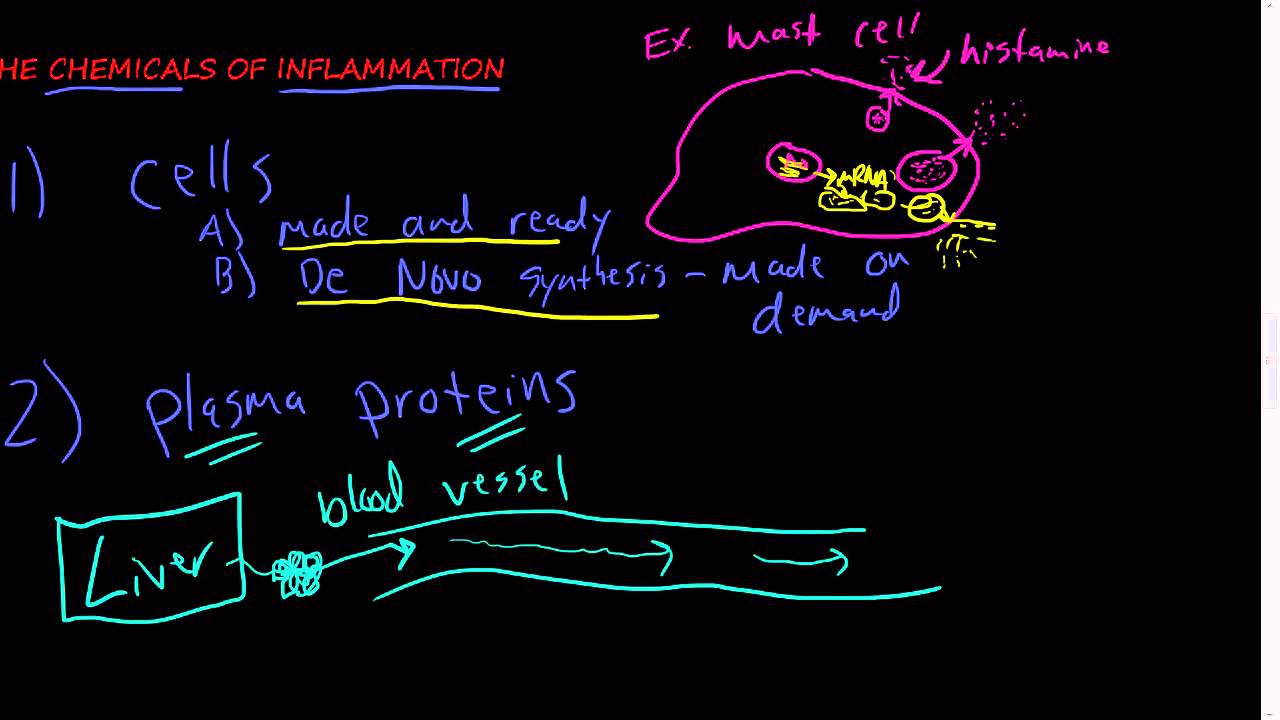 HE CHEMICALS OF INFLAMMATION
Ex. mast cell
histamine
1) Cells
A) made and ready
B) De Novo synthesis - made on demand
mRNA
2) Plasma proteins
blood vessel
Liver